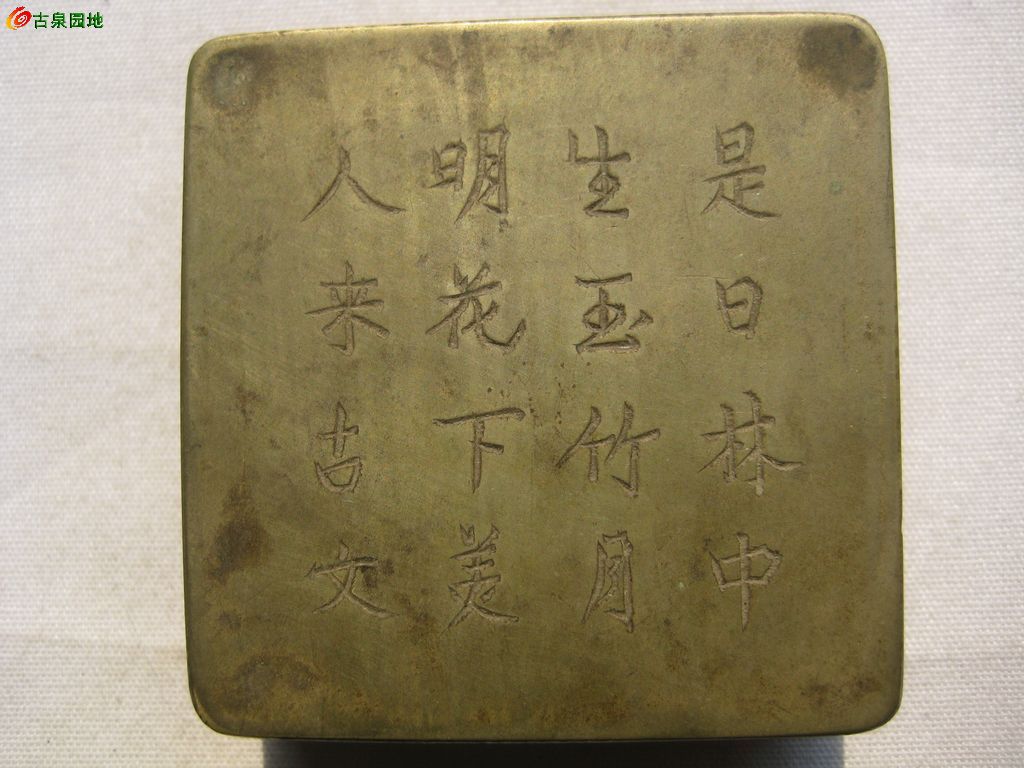 古泉园地
是日林中
生玉竹月
明花下美
人来古文